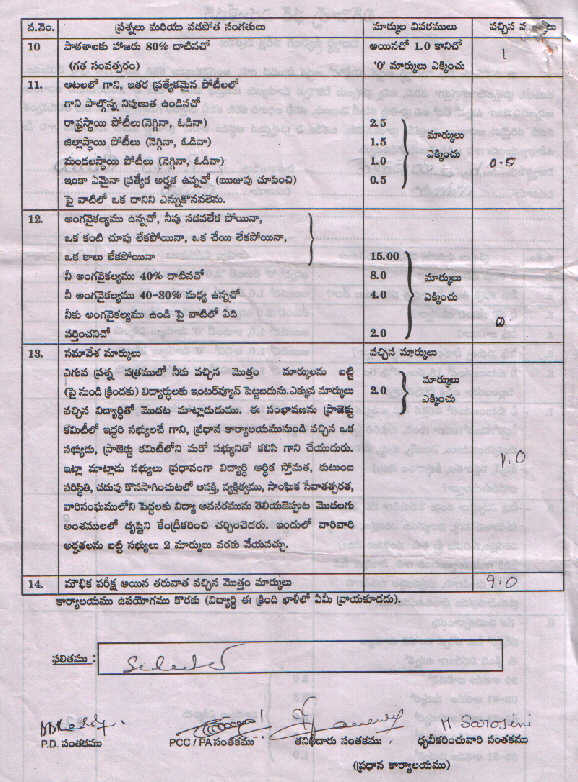 వ.నెం. ప్రశ్నలు మరియు వడపోత సంగతులు మార్కుల వివరములు వచ్చిన
10 పాఠశాలకు హాజరు 80% దాటినచో అయినచో 1.0 కానిచో 1
(గత సంవత్సరం) '0' మార్కులు ఎక్కించు
11. ఆటలలో గాని, ఇతర ప్రత్యేకమైన పోటీలలో
గాని పాల్గొన్న నిపుణుత ఉండినచో
రాష్ట్రస్థాయి పోటీలు (నెగ్గినా, ఓడినా) 2.5 మార్కులు
జిల్లాస్థాయి పోటీలు (నెగ్గినా, ఓడినా) 1.5 ఎక్కించు
మండలస్థాయి పోటీలు (నెగ్గినా, ఓడినా) 1.0 0.5
ఇంకా ఏమైనా ప్రత్యేక అర్హత ఉన్నచో (ఋజువు చూపించి) 0.5
పై వాటిలో ఒక దానిని ఎన్నుకొనవలెను.
12. అంగవైకల్యము ఉన్నచో, నీవు నడవలేక పోయినా,
ఒక కంటి చూపు లేకపోయినా, ఒక చేయి లేకపోయినా,
ఒక కాలు లేకపోయినా 15.00
నీ అంగవైకల్యము 40% దాటినచో 8.0 మార్కులు
నీ అంగవైకల్యము 40-80% మధ్య ఉన్నచో 4.0 ఎక్కించు
నీకు అంగవైకల్యము ఉండి పై వాటిలో ఏది 0
వర్తించనిచో 2.0
13. సమావేశ మార్కులు వచ్చిన మార్కులు
ఎగువ ప్రశ్న పత్రములో నీకు వచ్చిన మొత్తం మార్కులను బట్టి మార్కులు
(పై నుండి క్రిందకు) విద్యార్థులకు ఇంటర్వ్యూన్ పెట్టబడును. ఎక్కువ మార్కులు 2.0 ఎక్కించు
వచ్చిన విద్యార్థితో మొదట మాట్లాడుదుము. ఈ సంభాషణను ప్రాజెక్టు
కమిటీలో ఇద్దరి సభ్యులచే గాని, ప్రధాన కార్యాలయమునుండి వచ్చిన ఒక
సభ్యుడు, ప్రాజెక్టు కమిటీలోని మరో సభ్యునితో కలిసి గాని చేయుదురు.
ఇట్లా మాట్లాడు సభ్యులు ప్రధానంగా విద్యార్థి ఆర్థిక స్తోమత, కుటుంబ
పరిస్థితి, చదువు కొనసాగించుటలో ఆసక్తి, వ్యక్తిత్వము, సాంఘిక సేవాతత్పరత,
వారిసంఘములోని పెద్దలకు విద్యా అవసరమును తెలియజెప్పుట మొదలగు
అంశములలో దృష్టిని కేంద్రీకరించి చర్చించెదరు. ఇందులో వారివారి
అర్హతలను బట్టి సభ్యులు 2 మార్కులు వరకు వేయవచ్చు.
14. మౌఖిక పరీక్ష అయిన తరువాత వచ్చిన మొత్తం మార్కులు 9.0
కార్యాలయము ఉపయోగము కొరకు (విద్యార్థి ఈ క్రింది ఖాళీలో ఏమీ వ్రాయకూడదు).
ఫలితము :
M Sarojini
P.D. సంతకము PCC / PA సంతకము తనిఖీదారు సంతకము ధృవీకరించువారి సంతకము
(ప్రధాన కార్యాలయము)